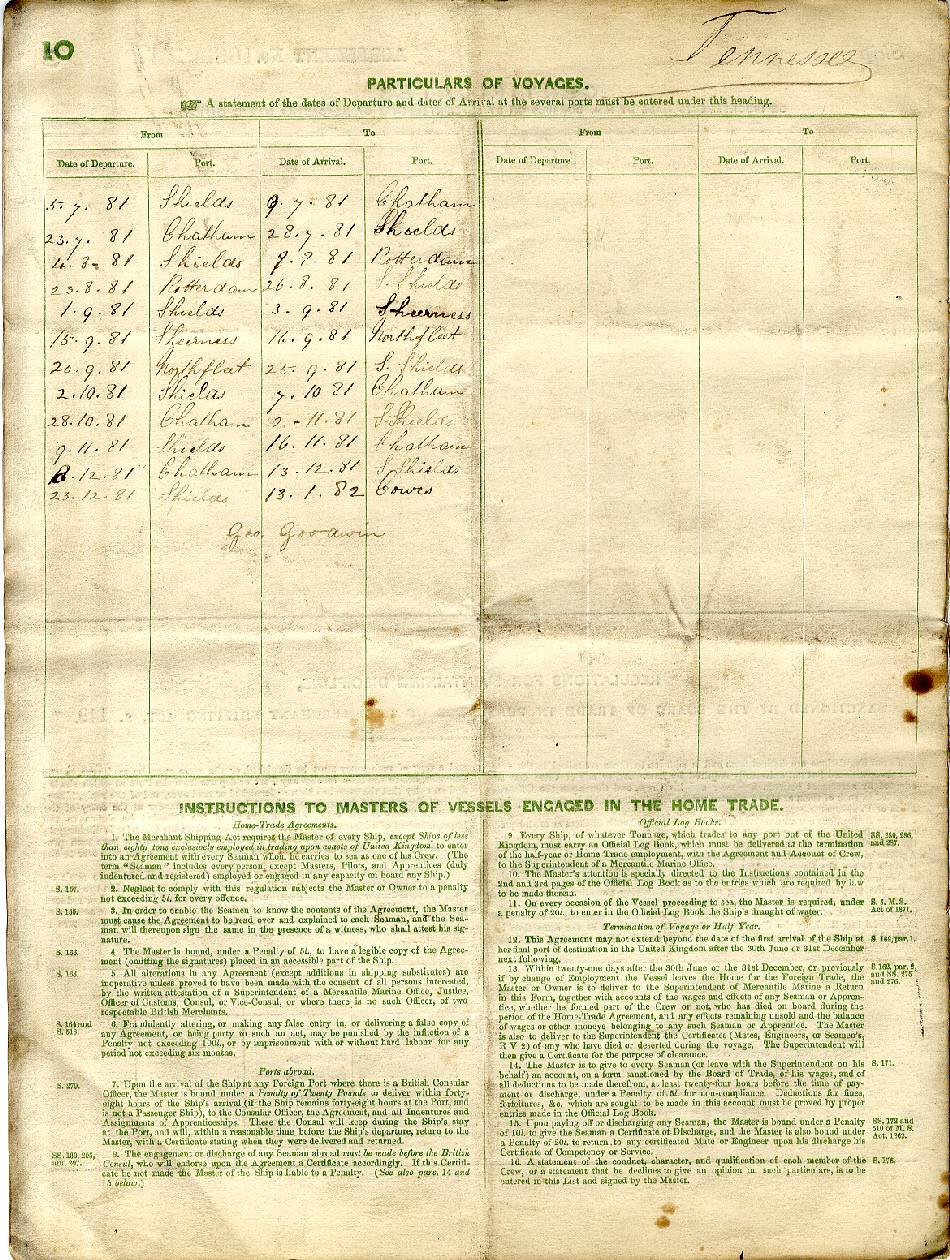 10
Tennessee
PARTICULARS OF VOYAGES.
A statement of the dates of Departure and dates of Arrival at the several ports must be entered under this heading.
From To From To
Date of Departure. Port. Date of Arrival. Port. Date of Departure. Port. Date of Arrival. Port.
5. 7. 81 Shields 9. 7. 81 Chatham
23. 7. 81 Chatham 28. 7. 81 Shields
4. 8. 81 Shields 81 Rotterdam
23. 8. 81 Rotterdam 26. 8. 81 S. Shields
1. 9. 81 Shields 3. 9. 81 Sheerness
15. 9. 81 Sheerness 16. 9. 81 Northfleet
20. 9. 81 Northfleet 25. 9. 81 S. Shields
2. 10. 81 Shields 7. 10 81 Chatham
28. 10. 81 Chatham 11. 81 S. Shields
9. 11. 81 Shields 16. 11. 81 Chatham
12. 81 Chatham 13. 12. 81 S. Shields
23. 12. 81 Shields 13. 1. 82 Cowes
Geo. Goodwin
INSTRUCTIONS TO MASTERS OF VESSELS ENGAGED IN THE HOME TRADE.
Home-Trade Agreements.
1. The Merchant Shipping Act requires the Master of every Ship, except Ships of less
than eighty tons exclusively employed in trading upon coasts of United Kingdom, to enter
into an Agreement with every Seaman whom he carries to sea as one of his Crew. (The
term "Seaman" includes every person, except Masters, Pilots, and Apprentices (duly
indentured and registered) employed or engaged in any capacity on board any Ship.)
S. 157. 2. Neglect to comply with this regulation subjects the Master or Owner to a penalty
not exceeding 5l. for every offence.
3. In order to enable the Seamen to know the contents of the Agreement, the Master
must cause the Agreement to be read over and explained to each Seaman, and the Sea-
man will thereupon sign the same in the presence of a witness, who shall attest his sig-
nature.
4. The Master is bound, under a Penalty of 5l., to have a legible copy of the Agree-
ment (omitting the signatures) placed in an accessible part of the Ship.
S. 163. 5. All alterations in any Agreement (except additions in shipping substitutes) are
inoperative unless proved to have been made with the consent of all persons interested,
by the written attestation of a Superintendent of a Mercantile Marine Office, Justice,
Officer of Customs, Consul, or Vice-Consul, or where there is no such Officer, of two
respectable British Merchants.
6. Fraudulently altering, or making any false entry in, or delivering a false copy of
any Agreement, or being party to such an act, may be punished by the infliction of a
Penalty not exceeding 100l., or by imprisonment with or without hard labour for any
period not exceeding six months.
Ports abroad.
S. 279. 7. Upon the arrival of the Ship at any Foreign Port where there is a British Consular
Officer, the Master is bound under a Penalty of Twenty Pounds to deliver within forty-
eight hours of the Ship's arrival (if the Ship remains forty-eight hours at the Port, and
is not a Passenger Ship), to the Consular Officer, the Agreement, and all Indentures and
Assignments of Apprenticeships. These the Consul will keep during the Ship's stay
at the Port, and will, within a reasonable time before the Ship's departure, return to the
Master, with a Certificate stating when they were delivered and returned.
8. The engagement or discharge of any Seaman abroad must be made before the British
Consul, who will endorse upon the Agreement a Certificate accordingly. If this Certifi-
cate be not made the Master of the Ship is liable to a Penalty. (See also pars. 14 and
5 below.)
Official Log Books.
9. Every Ship, of whatever Tonnage, which trades to any port out of the United
Kingdom, must carry an Official Log Book, which must be delivered at the termination
of the half-year or Home Trade employment, with the Agreement and Account of Crew,
to the Superintendent of a Mercantile Marine Office.
10. The Master's attention is specially directed to the Instructions contained in the
2nd and 3rd pages of the Official Log Book as to the entries which are required by law
to be made therein.
11. On every occasion of the Vessel proceeding to sea, the Master is required, under
a penalty of 20l. to enter in the Official Log Book the Ship's draught of water.
Act of 1871.
Termination of Voyage or Half Year.
12. This Agreement may not extend beyond the date of the first arrival of the Ship at
her final port of destination in the United Kingdom after the 30th June or 31st December
next following.
13. Within twenty-one days after the 30th June or the 31st December, or previously
if by change of Employment the Vessel leave the Home for the Foreign Trade, the
Master or Owner is to deliver to the Superintendent of Mercantile Marine a Return
in this Form, together with accounts of the wages and effects of any Seaman or Appren-
tice, whether he formed part of the Crew or not, who has died on board during the
period of the Home-Trade Agreement, and any effects remaining unsold and the balance
of wages or other moneys belonging to any such Seaman or Apprentice. The Master
is also to deliver to the Superintendent the Certificates (Mates, Engineers, or Seamen's,
R V 2) of any who have died or deserted during the voyage. The Superintendent will
then give a Certificate for the purpose of clearance.
14. The Master is to give to every Seaman (or leave with the Superintendent on his S. 171.
behalf) an account, on a form sanctioned by the Board of Trade, of his wages, and of
all deductions to be made therefrom, at least twenty-four hours before the time of pay-
ment or discharge, under a Penalty of 5l. for non-compliance. Deductions for fines,
forfeitures, &c., which are sought to be made in this account must be proved by proper
entries made in the Official Log Book.
15. Upon paying off or discharging any Seaman, the Master is bound under a Penalty
of 10l. to give the Seaman a Certificate of Discharge, and the Master is also bound under
a Penalty of 20l. to return to any certificated Mate or Engineer upon his discharge his
Certificate of Competency or Service.
16. A statement of the conduct, character, and qualification of each member of the
Crew, or a statement that he declines to give an opinion on such particulars, is to be
entered in this List and signed by the Master.